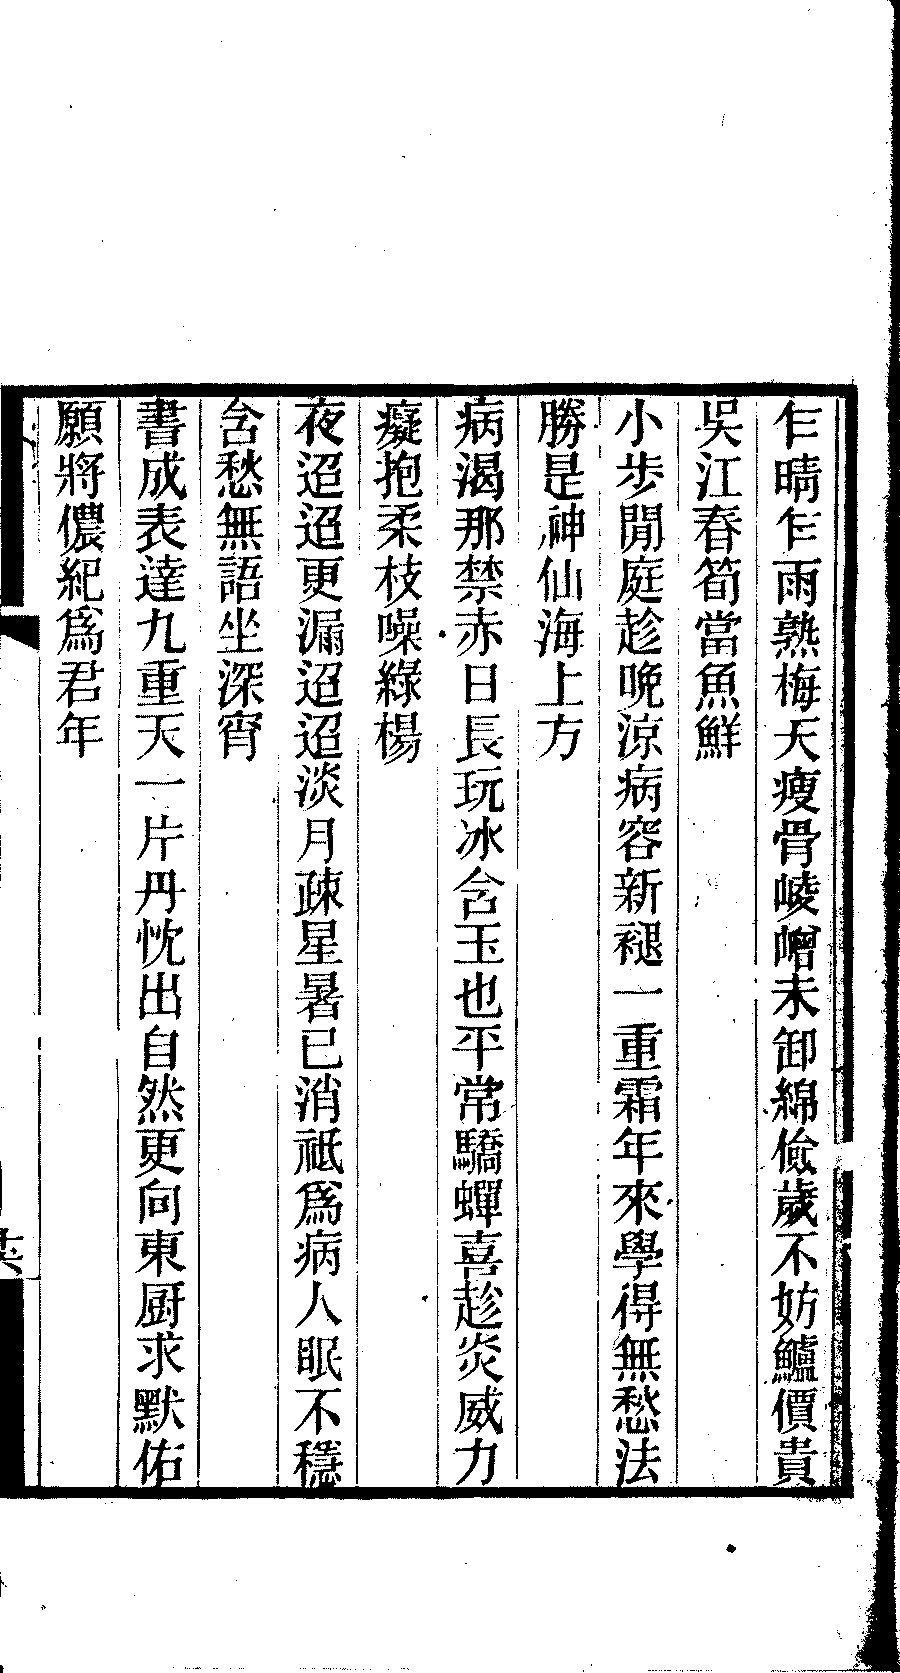 乍晴乍雨熟梅天瘦骨崚嶒未卸綿儉歲不妨鱸價貴
吳江春筍當魚鮮
小步閒庭趁晚涼病容新褪一重霜年來學得無愁法
勝是神仙海上方
病渴那禁赤日長玩冰含玉也平常驕蟬喜趁炎威力
癡抱柔枝噪綠楊
夜迢迢更漏迢迢淡月疎星暑已消祗爲病人眠不穩
含愁無語坐深宵
書成表達九重天一片丹忱出自然更向東厨求默佑
願將儂紀爲君年